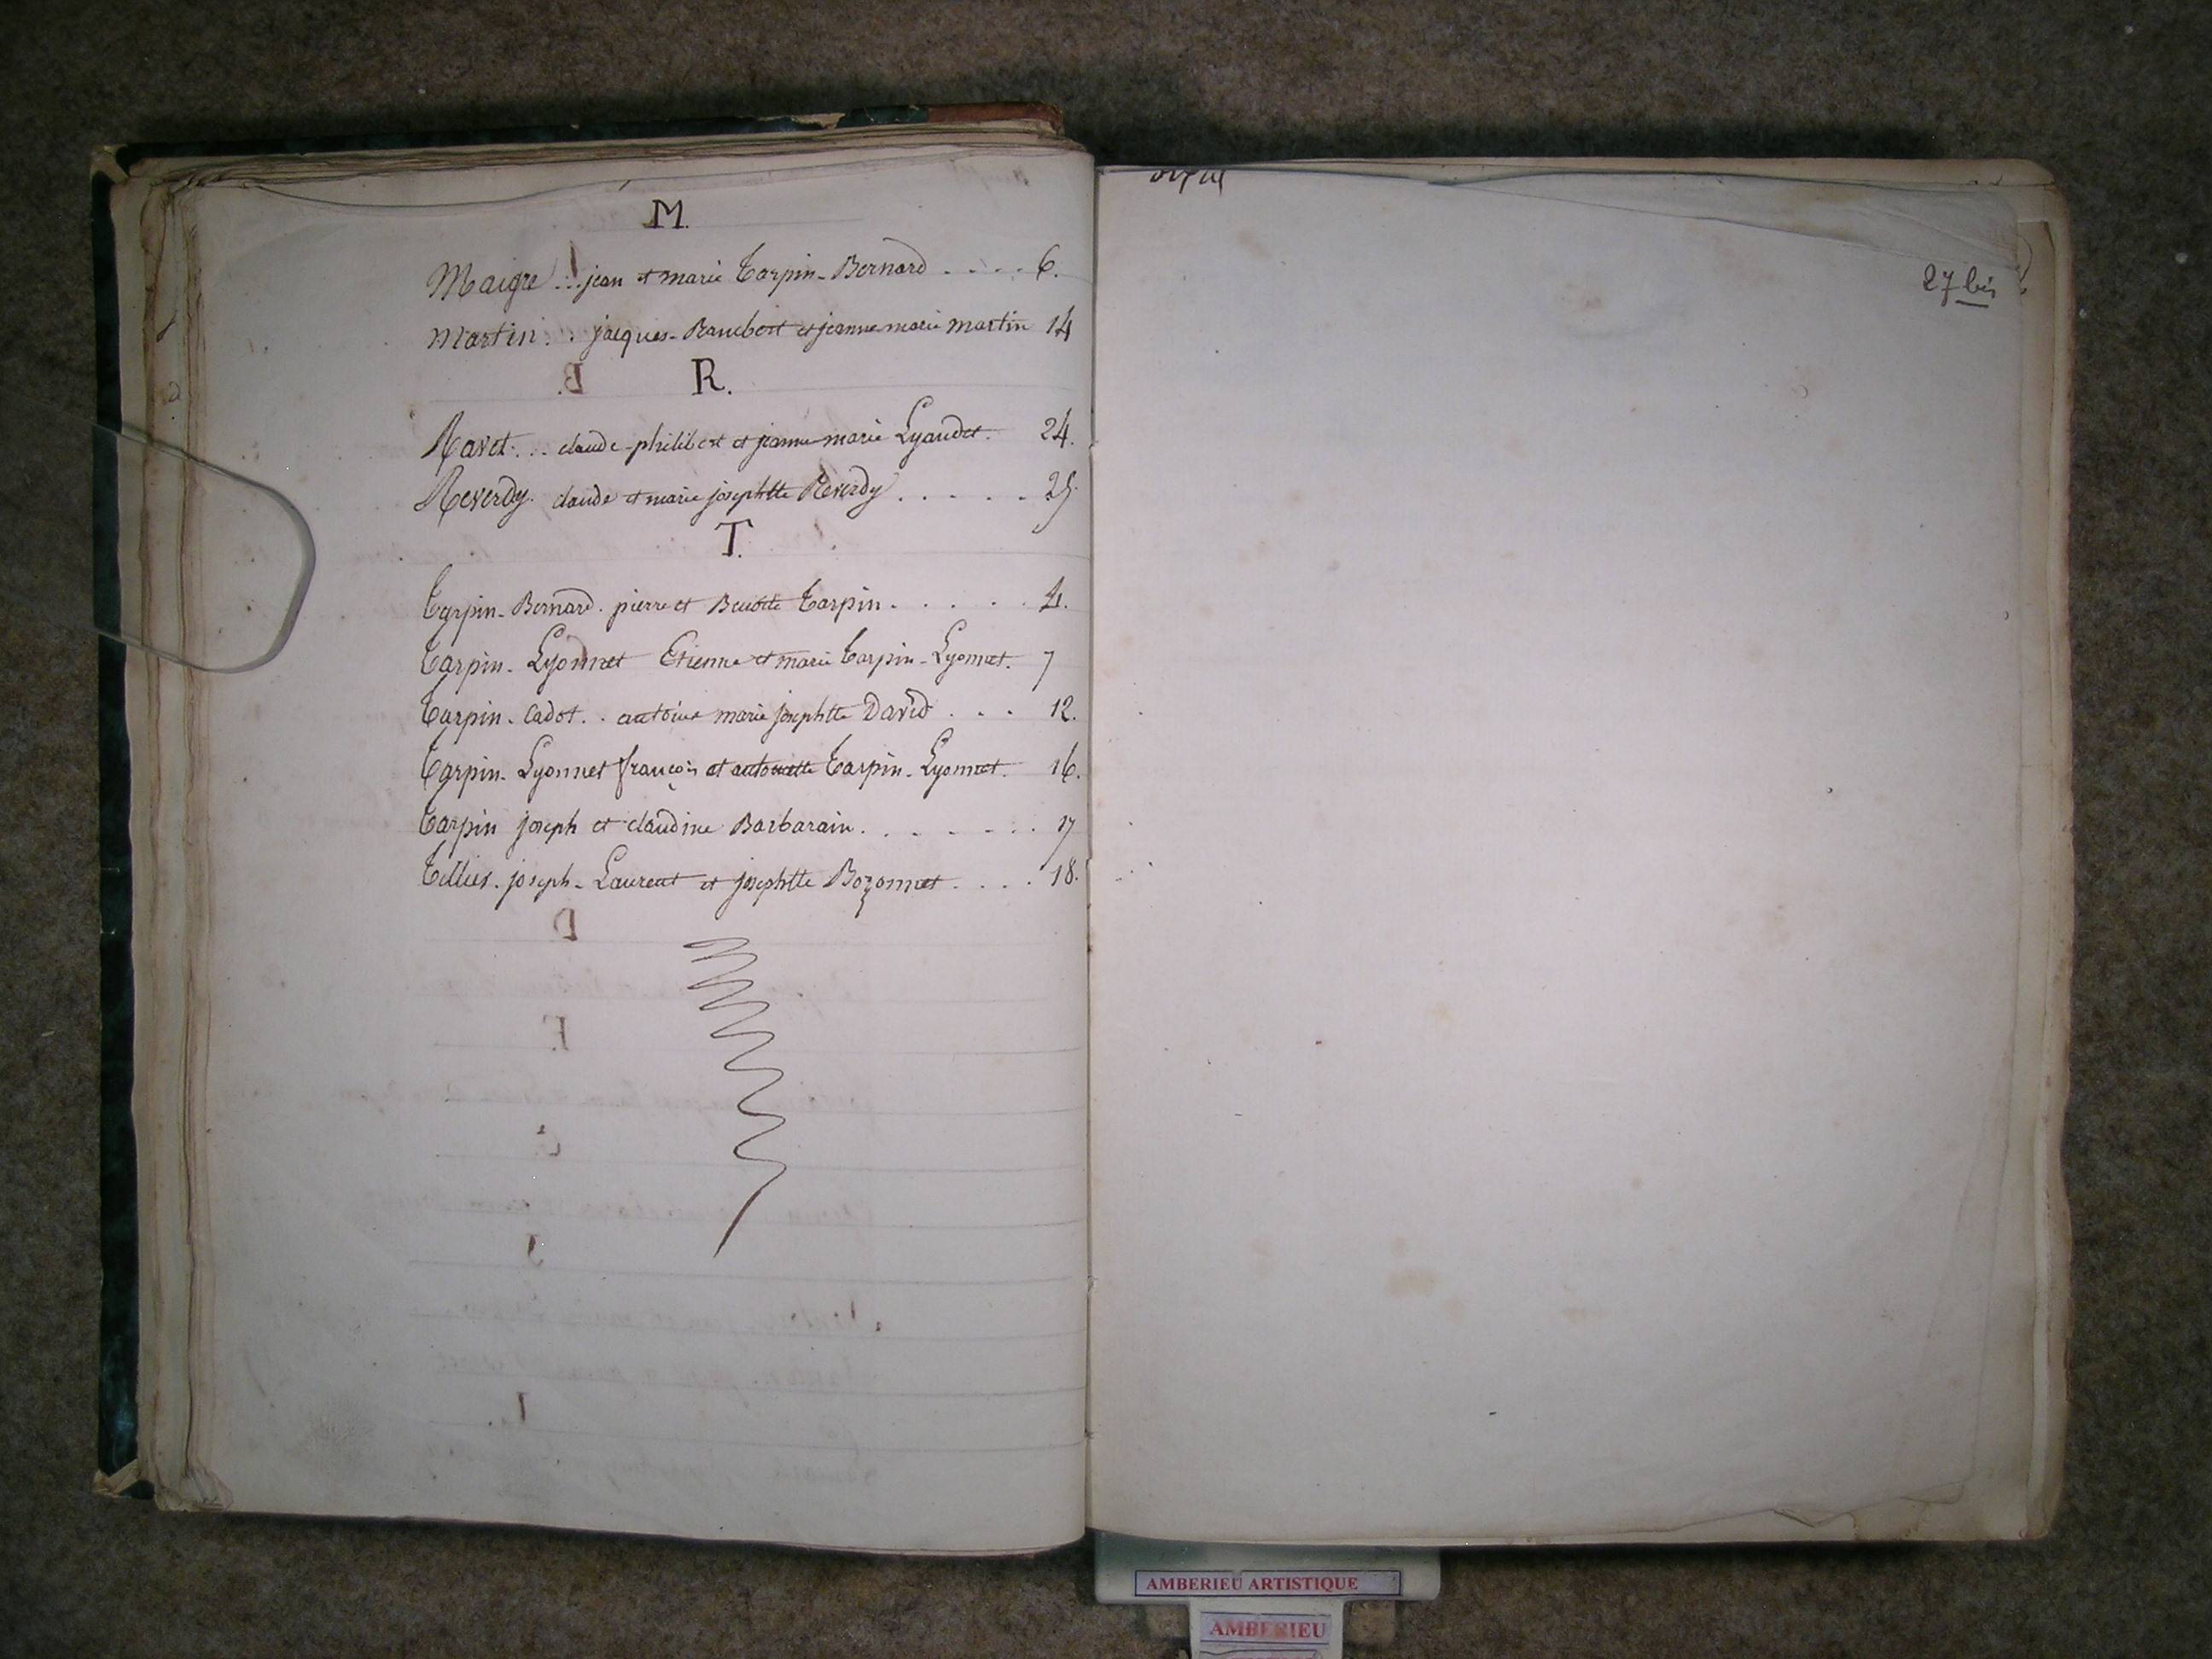 M.
Maigre ... jean et marie Tarpin-Bernard .... 6.
Martin . . jacques-Rambert et jeanne marie martin 14
R.
Ravet ... claude-philibert et jeanne-marie Lyaudet. 24.
Reverdy. claude et marie josephtte Reverdy ..... 25.
T.
Tarpin-Bernard. pierre et Benoite Tarpin ..... 4.
Tarpin-Lyonnet Etienne et marie Tarpin-Lyonnet. 7
Tarpin-Cadot.. antoine marie josephtte David ... 12.
Tarpin-Lyonnet françois et antoinette Tarpin-Lyonnet. 16.
Tarpin joseph et claudine Barbarain ....... 17
Tillier. joseph-Laurent et josephtte Bozonnet .... 18.
27 bis
AMBERIEU ARTISTIQUE
AMBERIEU